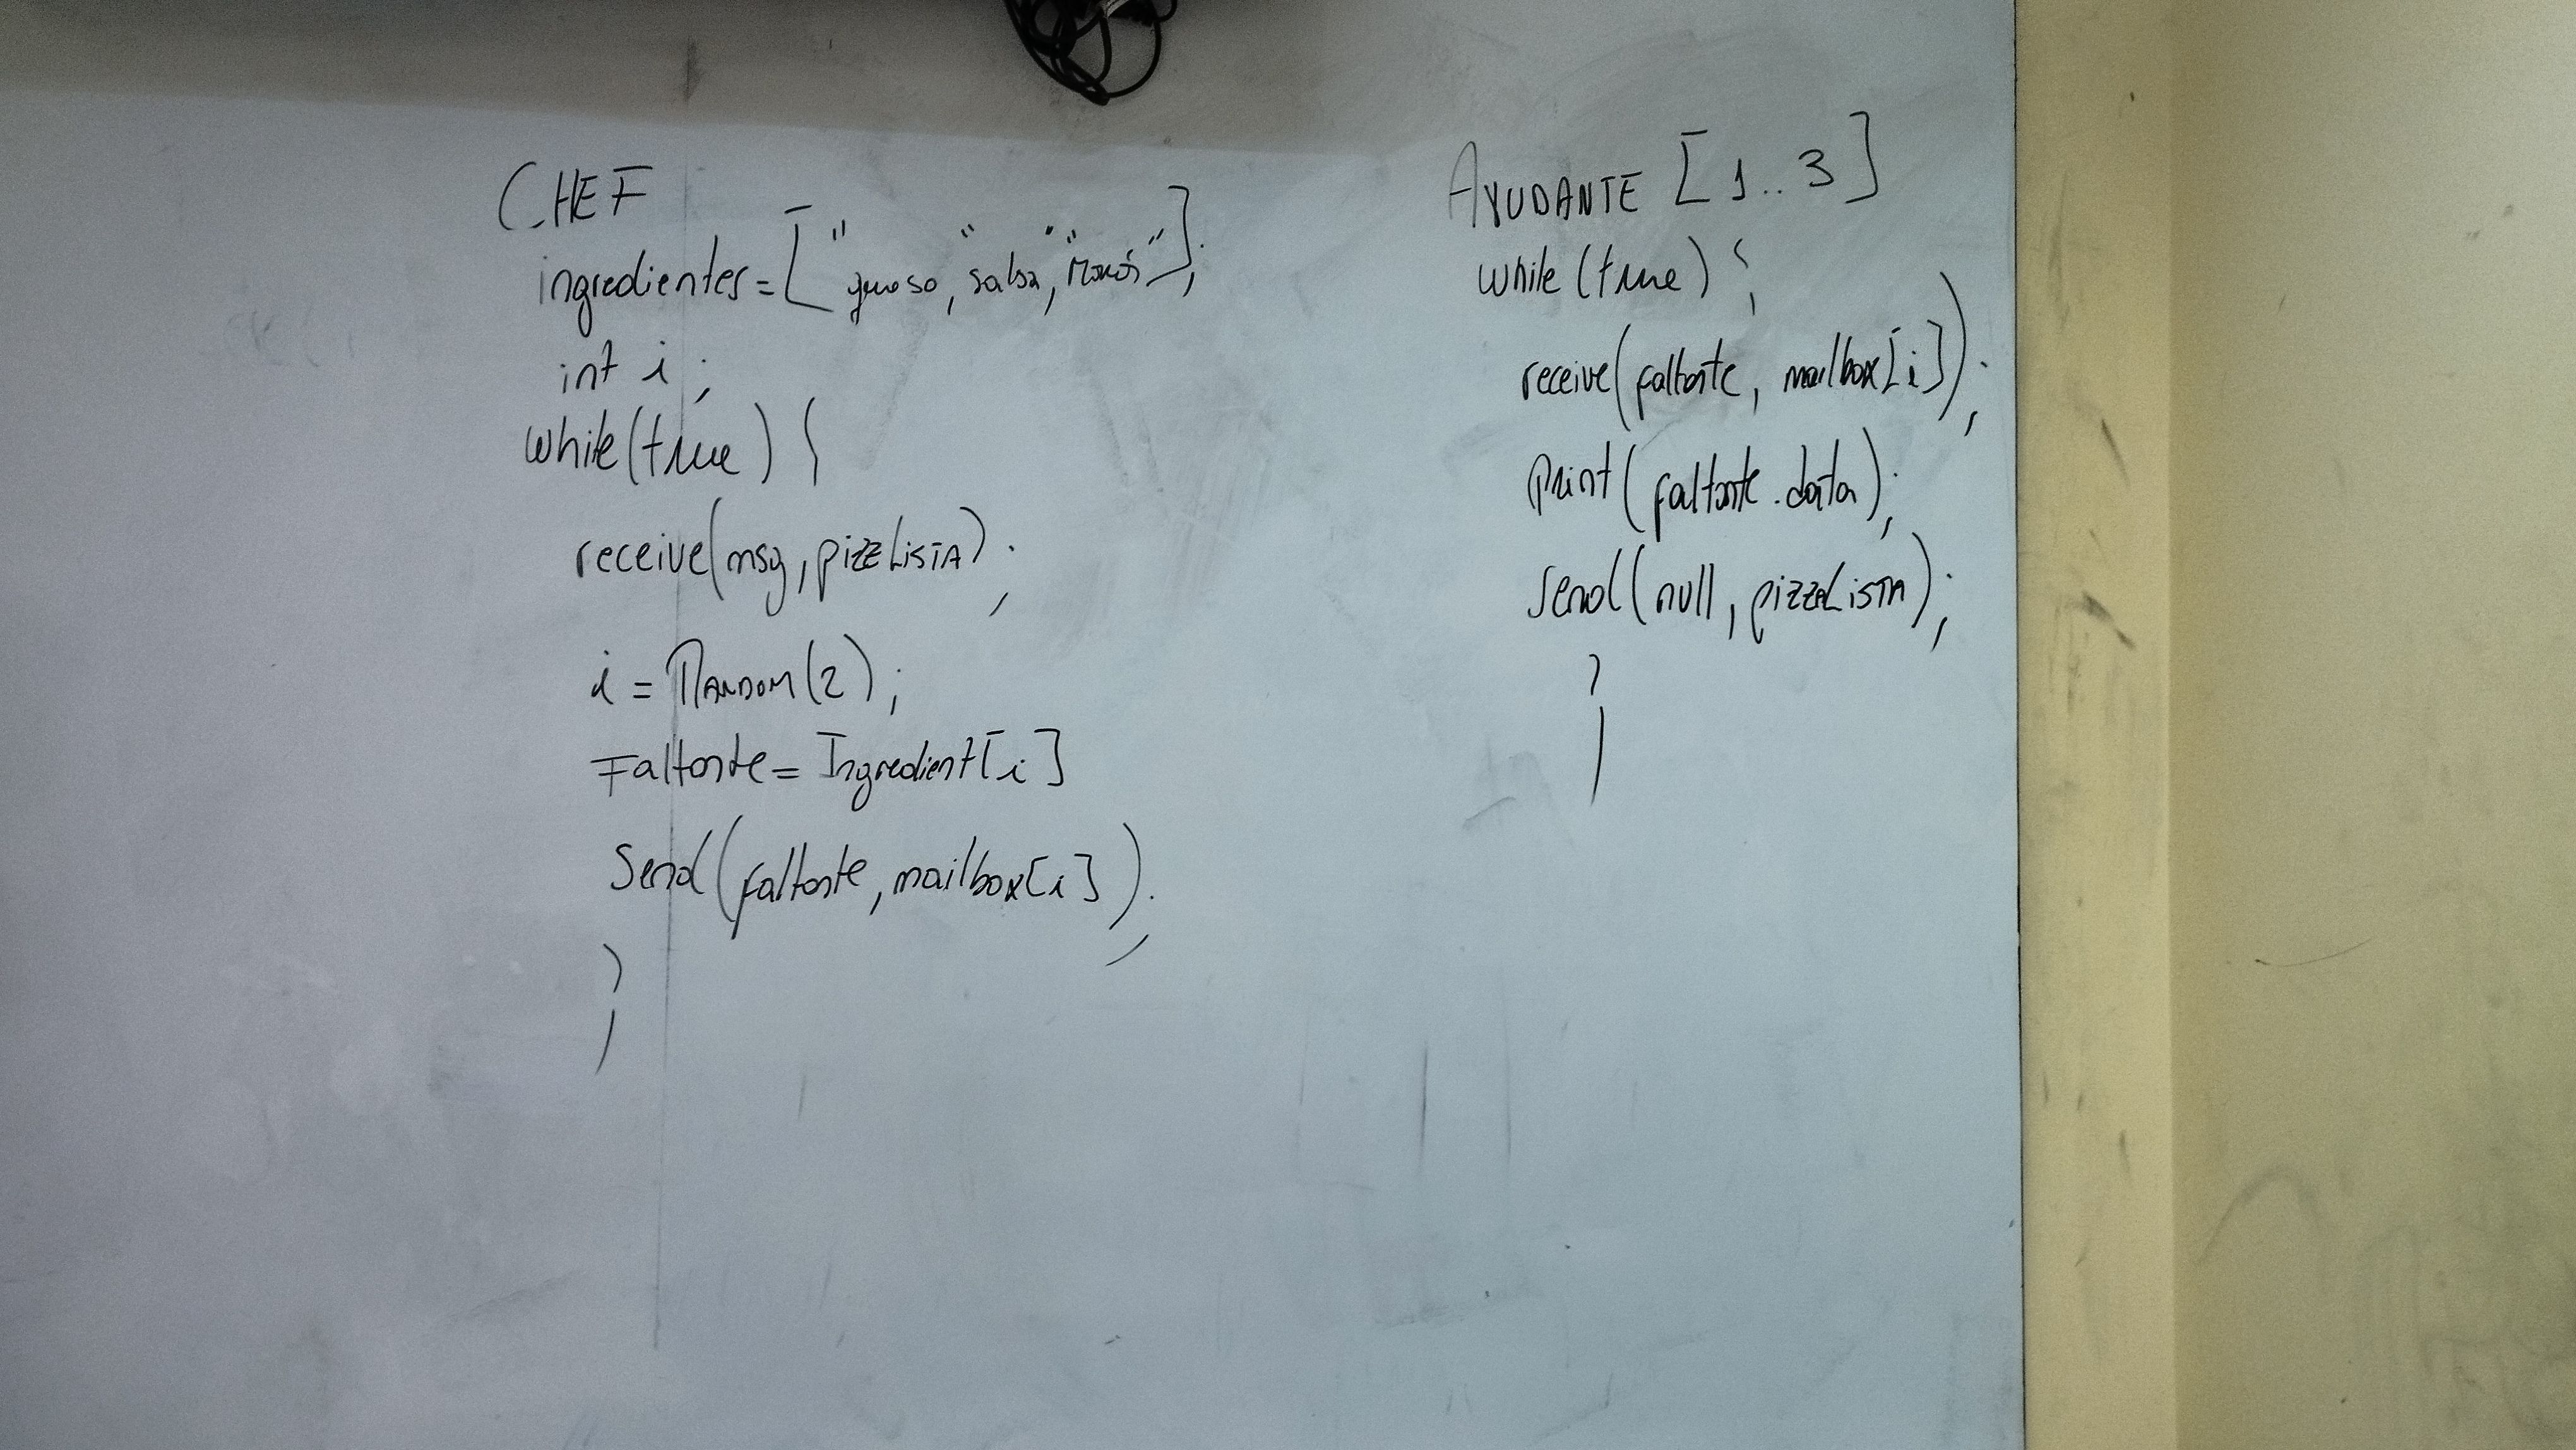 CHEF
ingredientes = ["queso, "salsa, "Moños"];
int i ;
while(true) {
receive(msg, pizzLista);
i = Random(2);
Faltante = Ingredient[i]
Send(faltante, mailbox[i]);
}
AYUDANTE [1..3]
while(true) {
receive(faltante, mailbox[i]);
print(faltante.data);
send(null, pizzaLista);
}